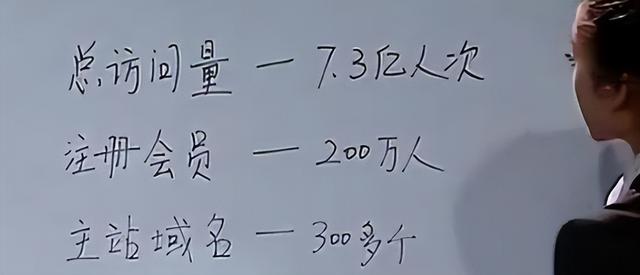 总访问量 — 7.3亿人次
注册会员 — 200万人
主站域名 — 300多个